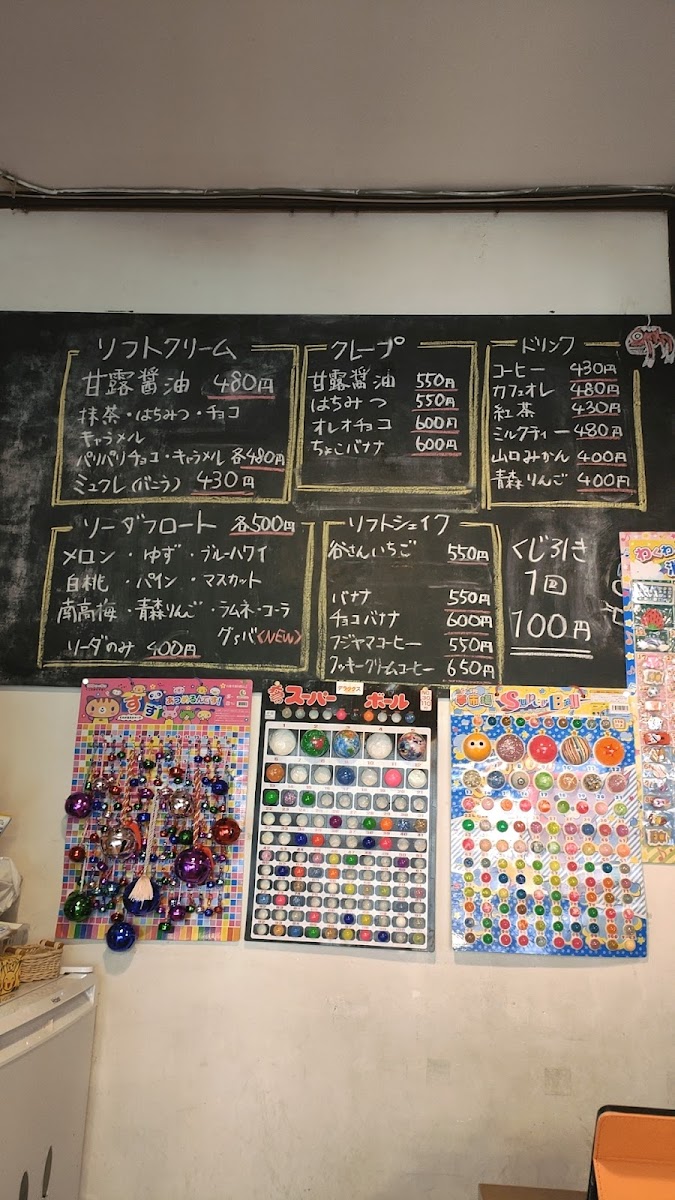 ソフトクリーム
甘露醤油 480円
抹茶・はちみつ・チョコ
キャラメル
パリパリチョコ・キャラメル 各480円
ミュフレ(バニラ) 430円
クレープ
甘露醤油 550円
はちみつ 550円
オレオチョコ 600円
ちょこバナナ 600円
ドリンク
コーヒー 430円
カフェオレ 480円
紅茶 430円
ミルクティー 480円
山口みかん 400円
青森りんご 400円
ソーダフロート 各500円
メロン・ゆず・ブルーハワイ
白桃・パイン・マスカット
南高梅・青森りんご・ラムネ・コーラ
(NEW)
ソーダのみ 400円
ソフトシェイク
谷さんいちご 550円
バナナ 550円
チョコバナナ 600円
フジヤマコーヒー 550円
クッキークリームコーヒー 650円
くじ引き
1回
100円
すず
あつめるんです!
デラックス
スーパーボール
わくわく